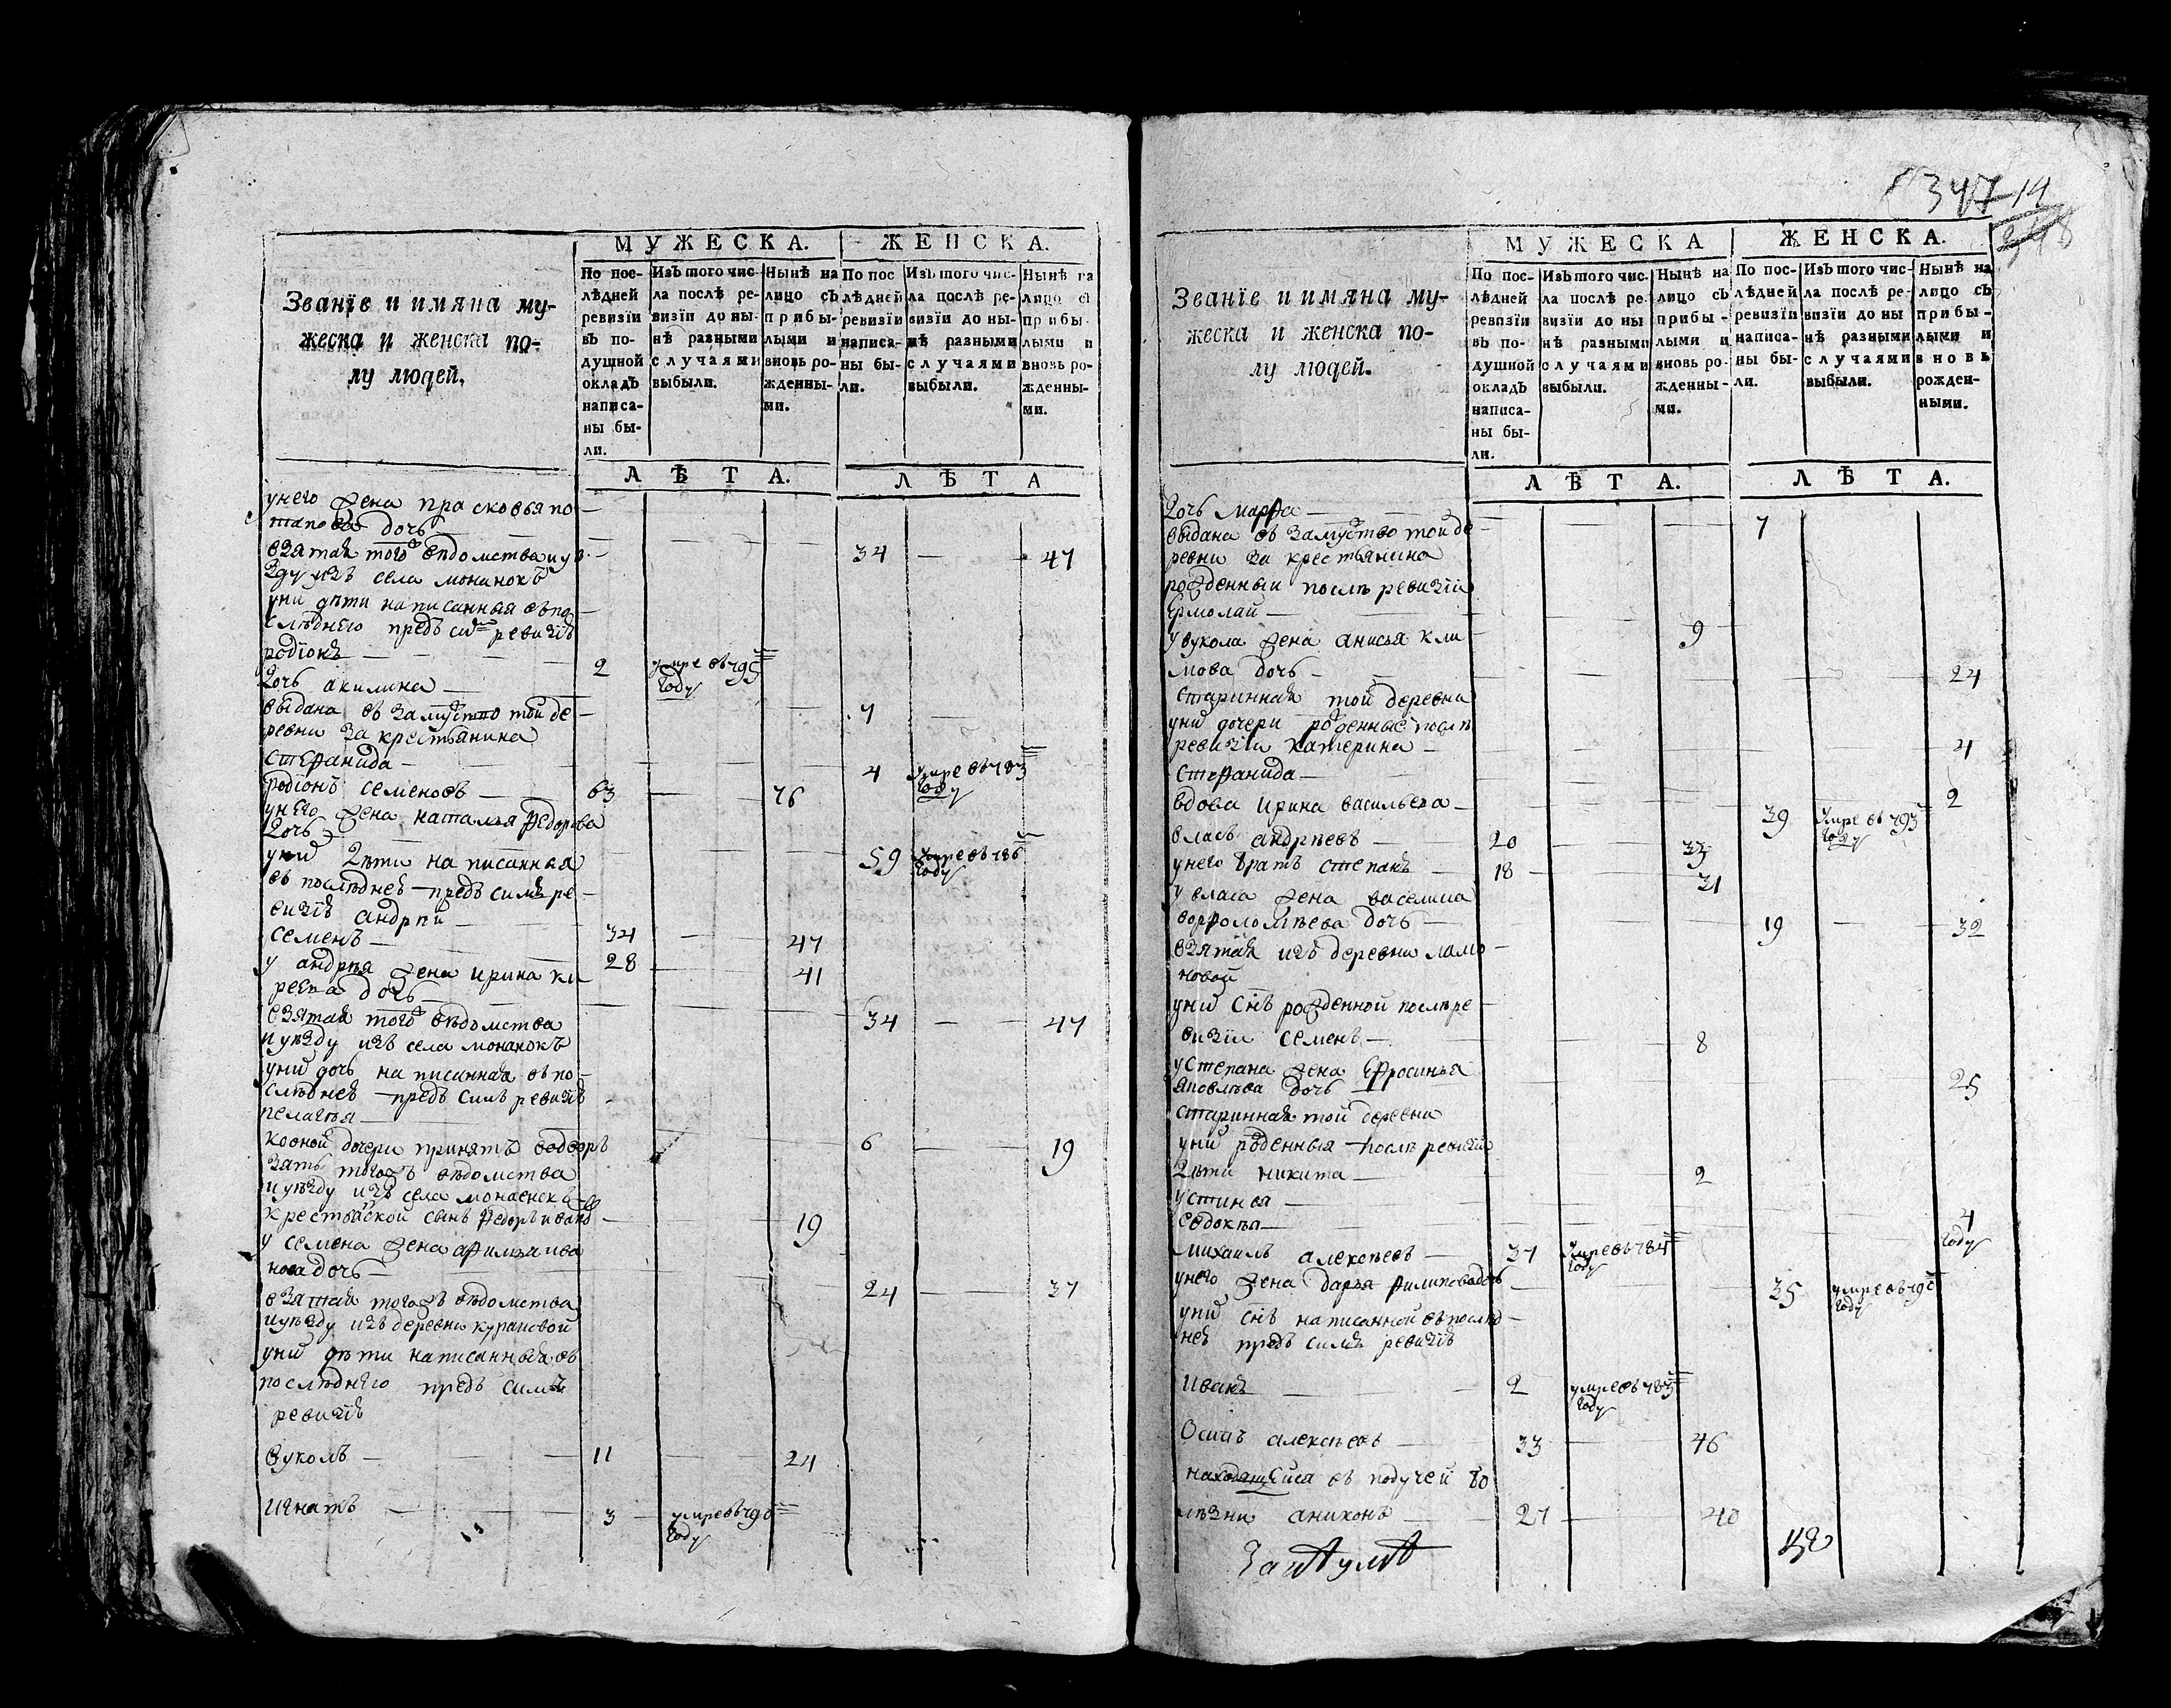 347 14
248
Званїе и имяна му-
жеска и женска по-
лу людей.
МУЖЕСКА.
ЖЕНСКА.
По пос-
лѣдней
ревизїи
въ по-
душной
окладъ
написа-
ны бы-
ли.
Изъ того чис-
ла послѣ ре-
визїи до ны-
нѣ разными
случаями
выбыли.
Нынѣ на
лицо съ
прибы-
лыми и
вновь ро-
жденны-
ми.
По пос
лѣдней
ревизїи
написа-
ны бы-
ли.
Изъ того чис-
ла послѣ ре-
визїи до ны-
нѣ разными
случаями
выбыли.
Нынѣ на
лицо съ
прибы-
лыми и
вновь ро-
жденны-
ми.
ЛѢТА.
ЛѢТА
унего жена прасковья по
тапова дочь
взятая того вѣдомства и уѣ 34 47
зду изъ села
уни дѣти написанныя впо
слѣднего предъ сию ревизїѣ
родїонъ 2 умре въ 795 году
дочь акилина
выдана въ замуство той де 7
ревни за крестьянина
стефанида 4 умре въ 783 году
родїонъ семеновъ 63 76
унего жена наталья федорова
дочь 59 умре въ 786 году
уних дѣти написанныя
въ послѣдней предъ симъ ре
визїѣ андрѣй 34 47
семенъ 28 41
у андрѣя жена ирина ки
реева дочь
взятая того вѣдомства 34 47
и уѣзду изъ села
уних дочь написанная въ по
слѣдней предъ симъ ревизїѣ
пелагѣя 6 19
коѣной дочери принятъ водворъ
зять тогожъ вѣдомства
и уѣзду изъ села
крестьянской сынъ федоръ иванов 19
у семена жена афимья ива
нова дочь 24 37
взятая тогожъ вѣдомства
и уѣзду изъ деревни
уних дѣти написанныя въ
послѣднего предъ симъ
ревизїѣ
вуколъ 11 24
игнатъ 3 умре въ 790 году
Званїе и имяна му-
жеска и женска по-
лу людей.
МУЖЕСКА
ЖЕНСКА.
По пос-
лѣдней
ревизїи
въ по-
душной
окладъ
написа-
ны бы-
ли.
Изъ того чис-
ла послѣ ре-
визїи до ны
нѣ разными
случаями
выбыли.
Нынѣ на
лицо съ
прибы-
лыми и
вновь ро-
жденны-
ми.
По пос-
лѣдней
ревизїи
написа-
ны бы-
ли.
Изъ того чис-
ла послѣ ре-
визїи до ны-
нѣ разными
случаями
выбыли.
Нынѣ на
лицо съ
прибы-
лыми и
вновь
рожден-
ными.
ЛѢТА.
ЛѢТА.
дочь марфа 7
выдана въ замуство той де
ревни за крестьянина
рожденный послѣ ревизїи
Ермолай 9
у вукола жена анисья кли
мова дочь 24
старинная той деревни
уних дочери рожденные послѣ
ревизїи катерина 4
стефанида 2
вдова ирина васильева 39 умре въ 793 году
власъ андрѣевъ 20 33
унего братъ степанъ 18 31
у власа жена василиса
ворфоломѣева дочь 19 32
взятая изъ деревни ламо
новой
уних снъ рожденной послѣ ре
визїи семенъ 8
у степана жена Ефросинья
яковлѣва дочь 25
старинная той деревни
уних рожденныя послѣ ревизїи
дѣти никита 2
устинья 4
Евдокѣя году
михаилъ алексѣевъ 37 умре въ 784 году
унего жена дарья филипова дочь 35 умре въ 790 году
уних снъ написанной въ послѣд
ней предъ симъ ревизїѣ
иванъ 2 умре въ 783 году
Осипъ алексѣевъ 33 46
находящейся въ падучей бо
лѣзни аниконъ 27 40